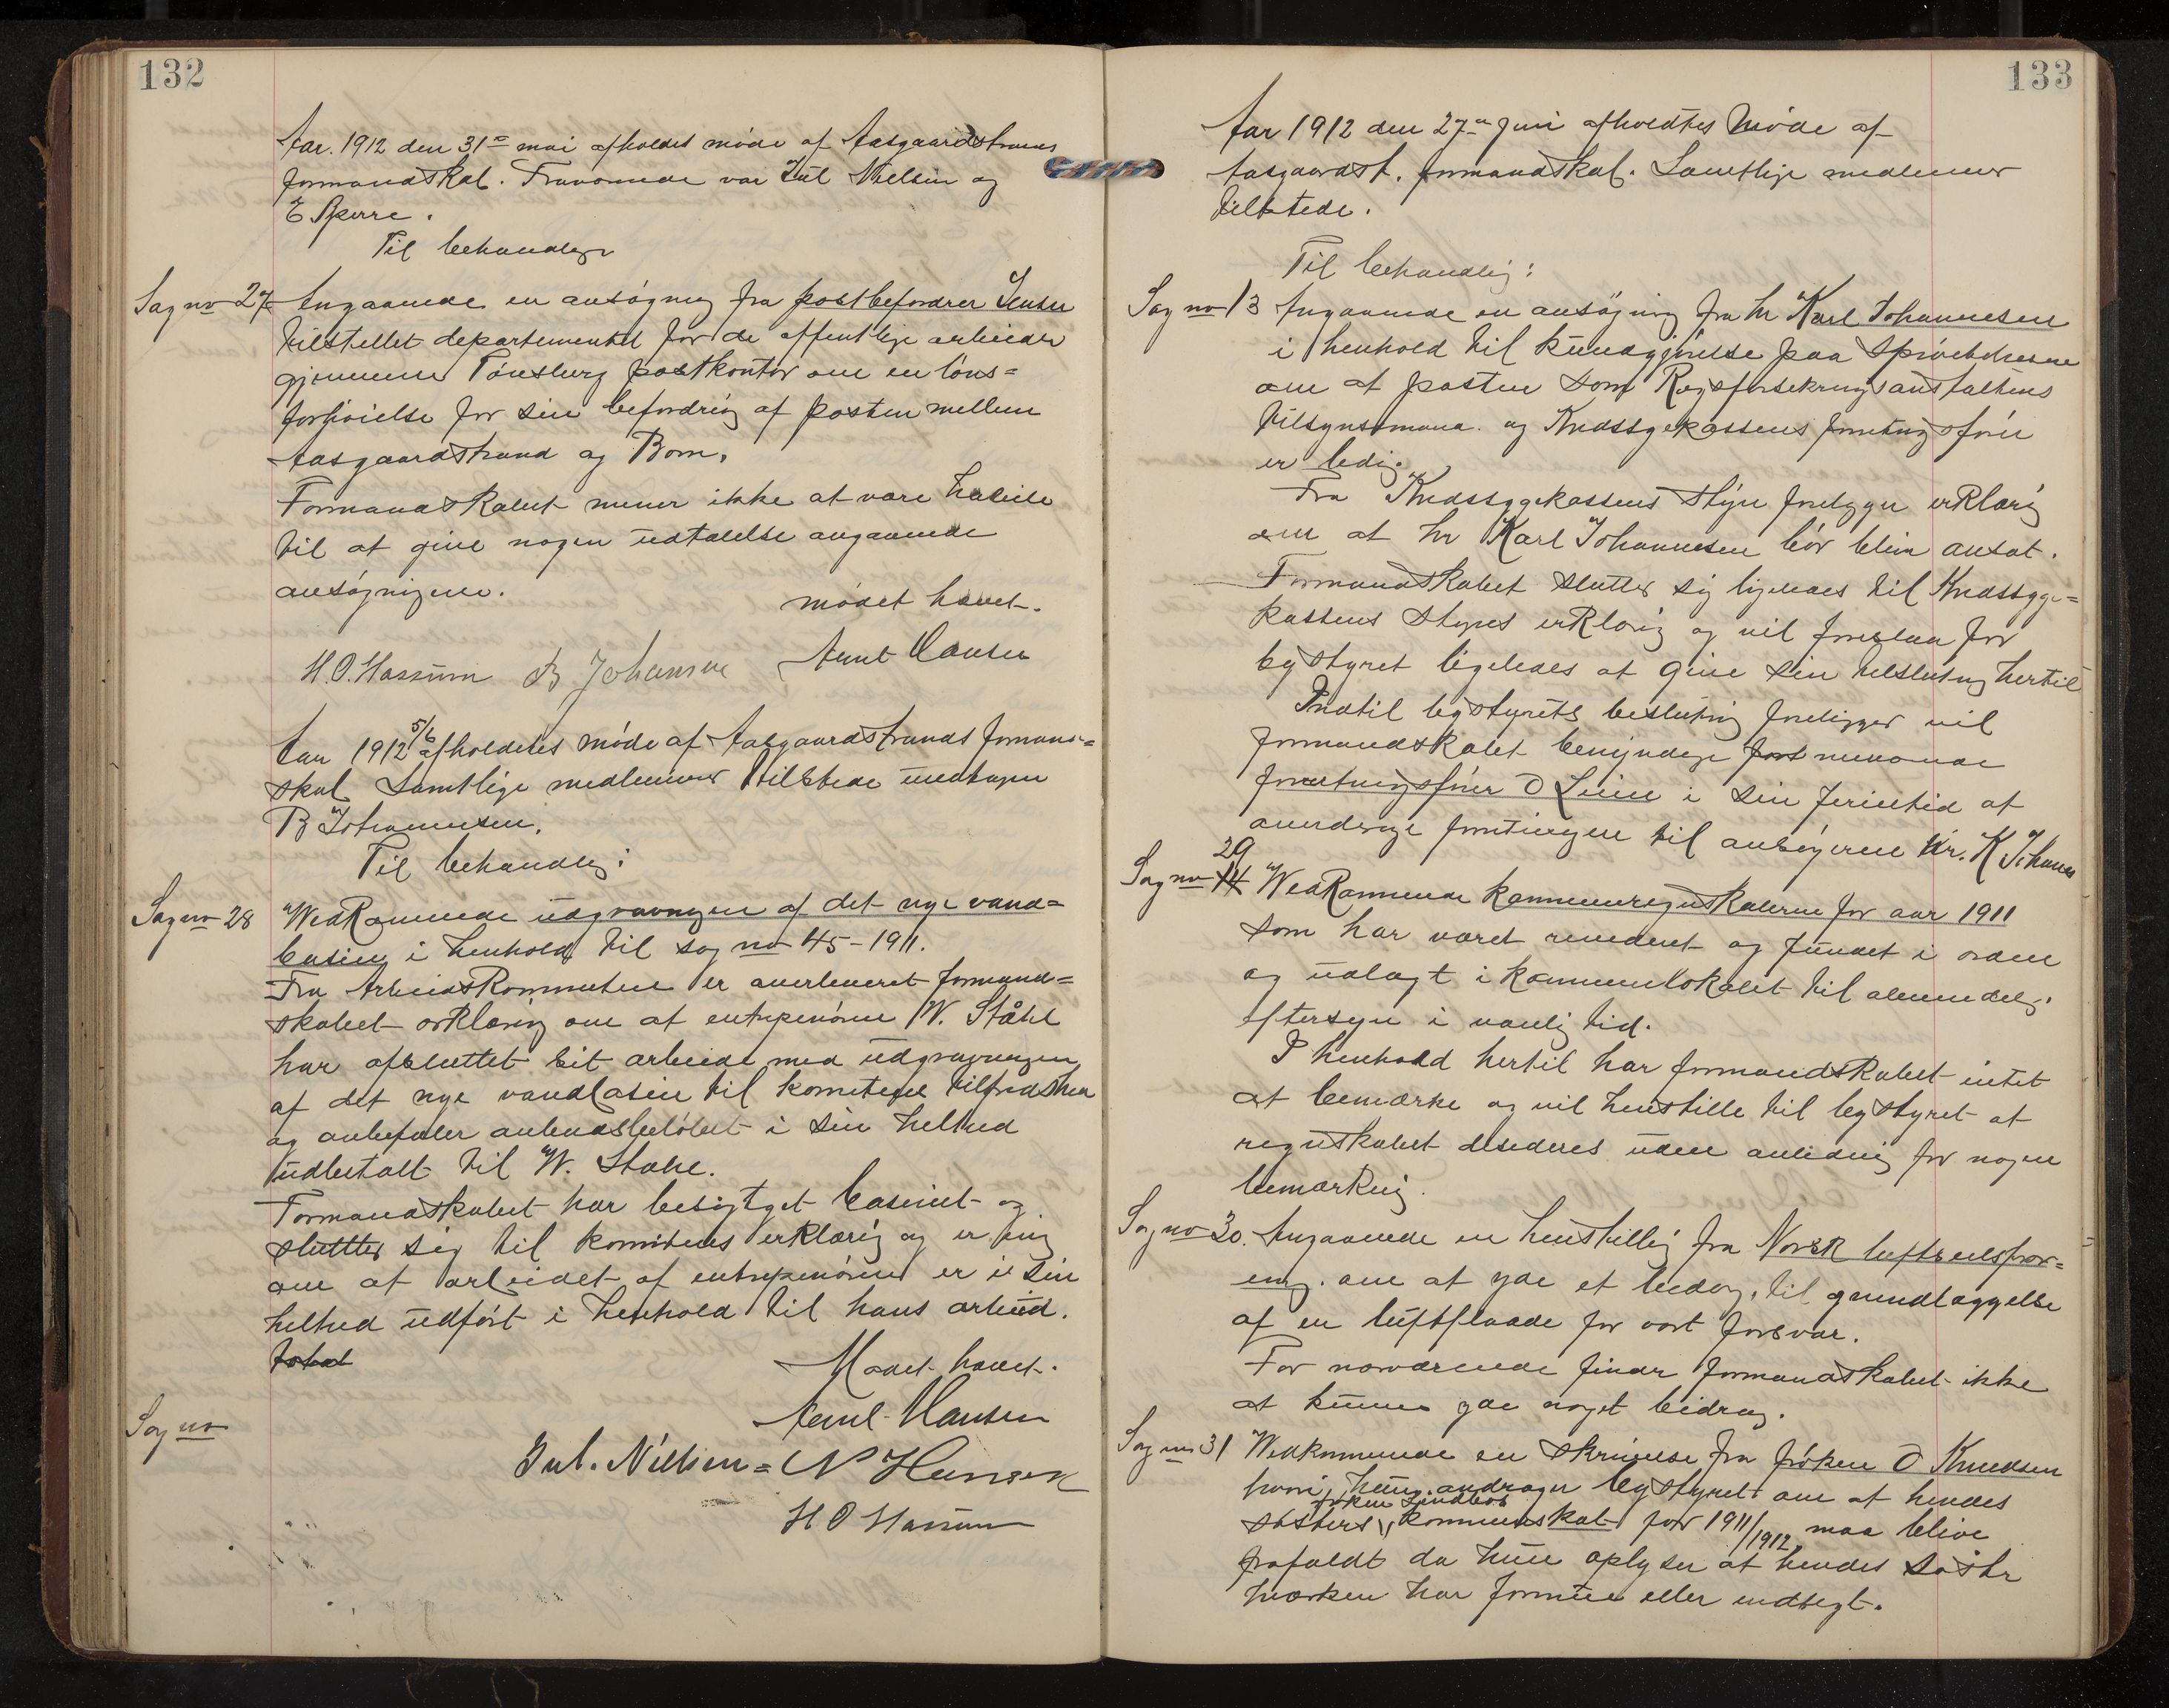 132
Aar. 1912 den 31te mai afholdes møde af Aasgaardstrands
formandskab. Fraværende var Jul Nielsen og
E Bjerre.
Til behandling
Sag no 27 Angaaende en ansøgning fra postbefordrer Jensen
tilstillet departementet for de offentlige arbeider
gjennem Tønsberg postkontor om en løns=
forhøielse for sin befordring af posten mellem
Aasgaardstrand og Borre.
Formandskabet mener ikke at være habile
til at give nogen uttalelse angaaende
ansøgningen.
mødet hævet.
H.O. Hassum B Johansen Arnt Hansen
Aar 1912 5/6 afholdtes møde af Aasgaardstrands forman=
skab Samtlige medlemmer tilstede undtagen
B Johannesen.
Til behandling:
Sag no 28 Vedkommende udgravningen af det nye vand=
basin i henhold til sag no 45-1911.
Fra Arbeidskommiteen er overleveret formand=
skabet erklæring om at entreprenøren W. Ståhl
har afsluttet sit arbeide med udgravningen
af det nye vandbasin til komiteens tilfredshed
og anbefaler anbudsbeløbet i sin helhed
udbetalt til W. Stahl.
Formandskabet har besigtget basinet og
slutter sig til komitens erklæring og er enig
om at arbeidet af entreprenøren er i sin
helhed udført i henhold til hans anbud.
Mødet hævet.
Arnt Hansen
Sag no
Jul. Nielsen = N Hansen
H O Hassum
133
Aar 1912 den 27de Juni afholdtes Møde af
Aasgaardst. formandskab. Samtlige medlemmer
tilstede.
Til behandling:
Sag no 13 Angaaende en ansøgning fra hr Karl Johannesen
i henhold til kundgjørelse paa
om at posten som Rigsforsekringsanstaltens
tilsynsmand. og Kredssygekassens forretningsfører
er ledig.
Fra Kredssygekassens styre foreligger erklæring
om at hr Karl Johannesen bør blive ansat.
Formandskabet slutter sig ligeledes til Kredssyge=
kassens styres erklæring og vil foreslaa for
bystyret ligeledes at give sin tilslutning hertil
Indtil bystyrets beslutning foreligger vil
formandskabet bemyndige forr nuværende
forretningsfører O Linie i sin ferietid at
overdrage forretningen til ansøgeren hr. K Johannes
29
Sag no 14 Vedkommende kommuneregnskaberne for aar 1911
som har været revideret og fundet i orden
og udlagt i kommunelokalet til almindelig
eftersyn i vanlig tid.
I henhold hertil har formandskabet intet
at bemærke og vil henstille til bystyret at
regnskabet desideres uden anledning for nogen
bemærkning.
Sag no 30. Angaaende en henstilling fra Norsk luftseilsfor=
ening. om at yde et bidrag, til grundlæggelse
af en luftflaade for vort forsvar.
For nærværende finder formandskabet ikke
at kunne yde noget bidrag.
Sag no 31 Vedkommende en skrivelse fra frøken O Knudsen
hvori hun andrager bystyret om at hendes
frøken Lindbos
søsters komunneskat for 1911/1912 maa blive
frafaldt da hun oplyser at hendes søster
hverken har formue eller indtegt.